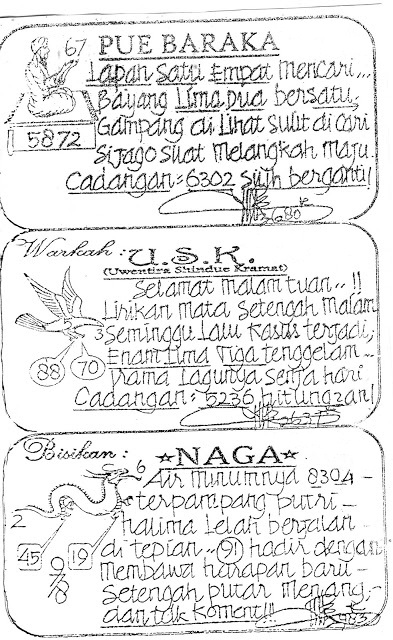 67 PUE BARAKA
Lapan Satu Empat Mencari...
Bayang Lima Dua bersatu,
Gampang di Lihat Sulit di cari
5872
Sijago Suat Melangkah Maju
Cadangan = 6302 Sulh berganti!
680
Warkah : U.S.K.
(Uwentira Shindue Kramat)
Selamat malam tuan..!!
Lirikan mata Setengah Malam
3 Seminggu Lalu Kasus terjadi,
88 70
Enam Lima Tiga tenggelam...
Irama Lagunya Senja hari
Cadangan : 5236 hitungan!
Bisikan : ☆NAGA☆
6
Air minumnya 8304 -
terpampang putri -
2
halima Lelah berjalan -
45 19
di tepian.. 91 hadir dengan
membawa harapan baru -
9/78
Setengah putar menang,-
dan tak koment!!!